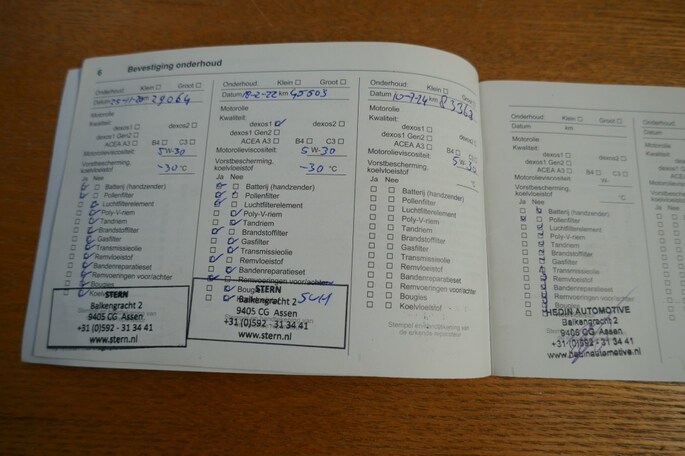 6
Bevestiging onderhoud
Onderhoud: Klein Groot
Datum km 29064
Motorolie
Kwaliteit:
dexos1 dexos2
dexos1 Gen2
ACEA A3 B4 C3
Motorolieviscositeit: 5W-30
Vorstbescherming,
koelvloeistof -30 °C
Ja Nee
Batterij (handzender)
Pollenfilter
Luchtfilterelement
Poly-V-riem
Tandriem
Brandstoffilter
Gasfilter
Transmissieolie
Remvloeistof
Bandenreparatieset
Remvoeringen voor/achter
Bougies
STERN
Balkengracht 2
9405 CG Assen
+31 (0)592 - 31 34 41
www.stern.nl
Onderhoud: Klein Groot
Datum km 45503
Motorolie
Kwaliteit:
dexos1 dexos2
dexos1 Gen2
ACEA A3 B4 C3
Motorolieviscositeit: 5W-30
Vorstbescherming,
koelvloeistof -30 °C
Ja Nee
Batterij (handzender)
Pollenfilter
Luchtfilterelement
Poly-V-riem
Tandriem
Brandstoffilter
Gasfilter
Transmissieolie
Remvloeistof
Bandenreparatieset
Remvoeringen voor/achter
STERN
Balkengracht 2
9405 CG Assen
+31 (0)592 - 31 34 41
www.stern.nl
Onderhoud: Klein Groot
Datum 10-7-24 km
Motorolie
Kwaliteit:
dexos1 dexos2
dexos1 Gen2
ACEA A3 B4 C3
Motorolieviscositeit:
5W-30
Vorstbescherming,
koelvloeistof °C
Ja Nee
Batterij (handzender)
Pollenfilter
Luchtfilterelement
Poly-V-riem
Tandriem
Brandstoffilter
Gasfilter
Transmissieolie
Remvloeistof
Bandenreparatieset
Remvoeringen voor/achter
Bougies
Koelvloeistof
Onderhoud: Klein Groot
Datum km
Motorolie
Kwaliteit:
dexos1 dexos2
dexos1 Gen2
ACEA A3 B4 C3
Motorolieviscositeit:
Vorstbescherming,
koelvloeistof °C
Ja Nee
Batterij (handzender)
Pollenfilter
Luchtfilterelement
Poly-V-riem
Tandriem
Brandstoffilter
Gasfilter
Transmissieolie
Remvloeistof
Bandenreparatieset
Remvoeringen voor/achter
Bougies
Koelvloeistof
HEDIN AUTOMOTIVE
Balkengracht 2
9405 CG Assen
+31 (0)592 - 31 34 41
www.hedinautomotive.nl